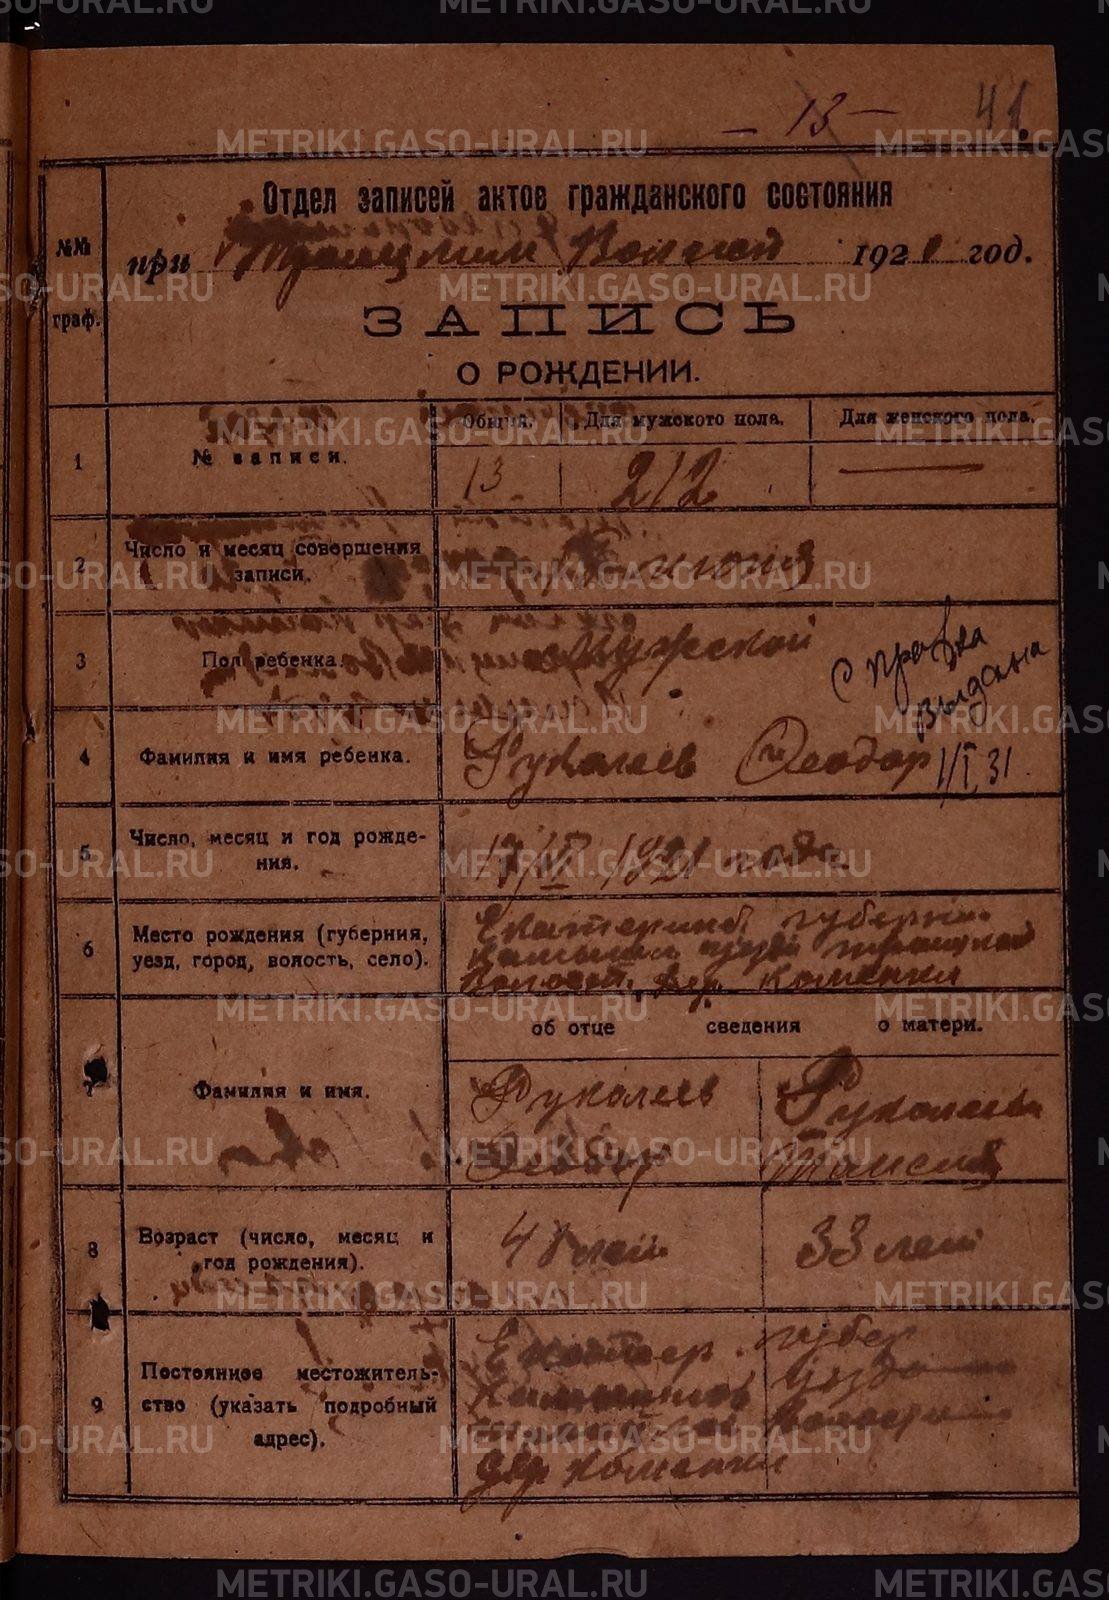 - 13 - 41.
Отдел записей актов гражданского состояния
№№ граф.
при Троицким Вол 1921 год.
ЗАПИСЬ
О РОЖДЕНИИ.
1 № записи. Общий. Для мужского пола. Для женского пола.
13 212 —
2 Число и месяц совершения записи. июня
3 Пол ребенка. Мужской
Справка
выдана
1/I 31.
4 Фамилия и имя ребенка. Руколеев Феодор
5 Число, месяц и год рождения. 1921 года
6 Место рождения (губерния, уезд, город, волость, село). Екатеринб. губерн.
Камышл уезда Троицкой
Волост. дер. Каменки
об отце сведения о матери.
7 Фамилия и имя. Руколеев Феодор Руколеева Таисия
8 Возраст (число, месяц и год рождения). 48 лет 33 лет
9 Постоянное местожительство (указать подробный адрес). Екатер. губер
Камышлов уезда
волости
дер Каменки
METRIKI.GASO-URAL.RU